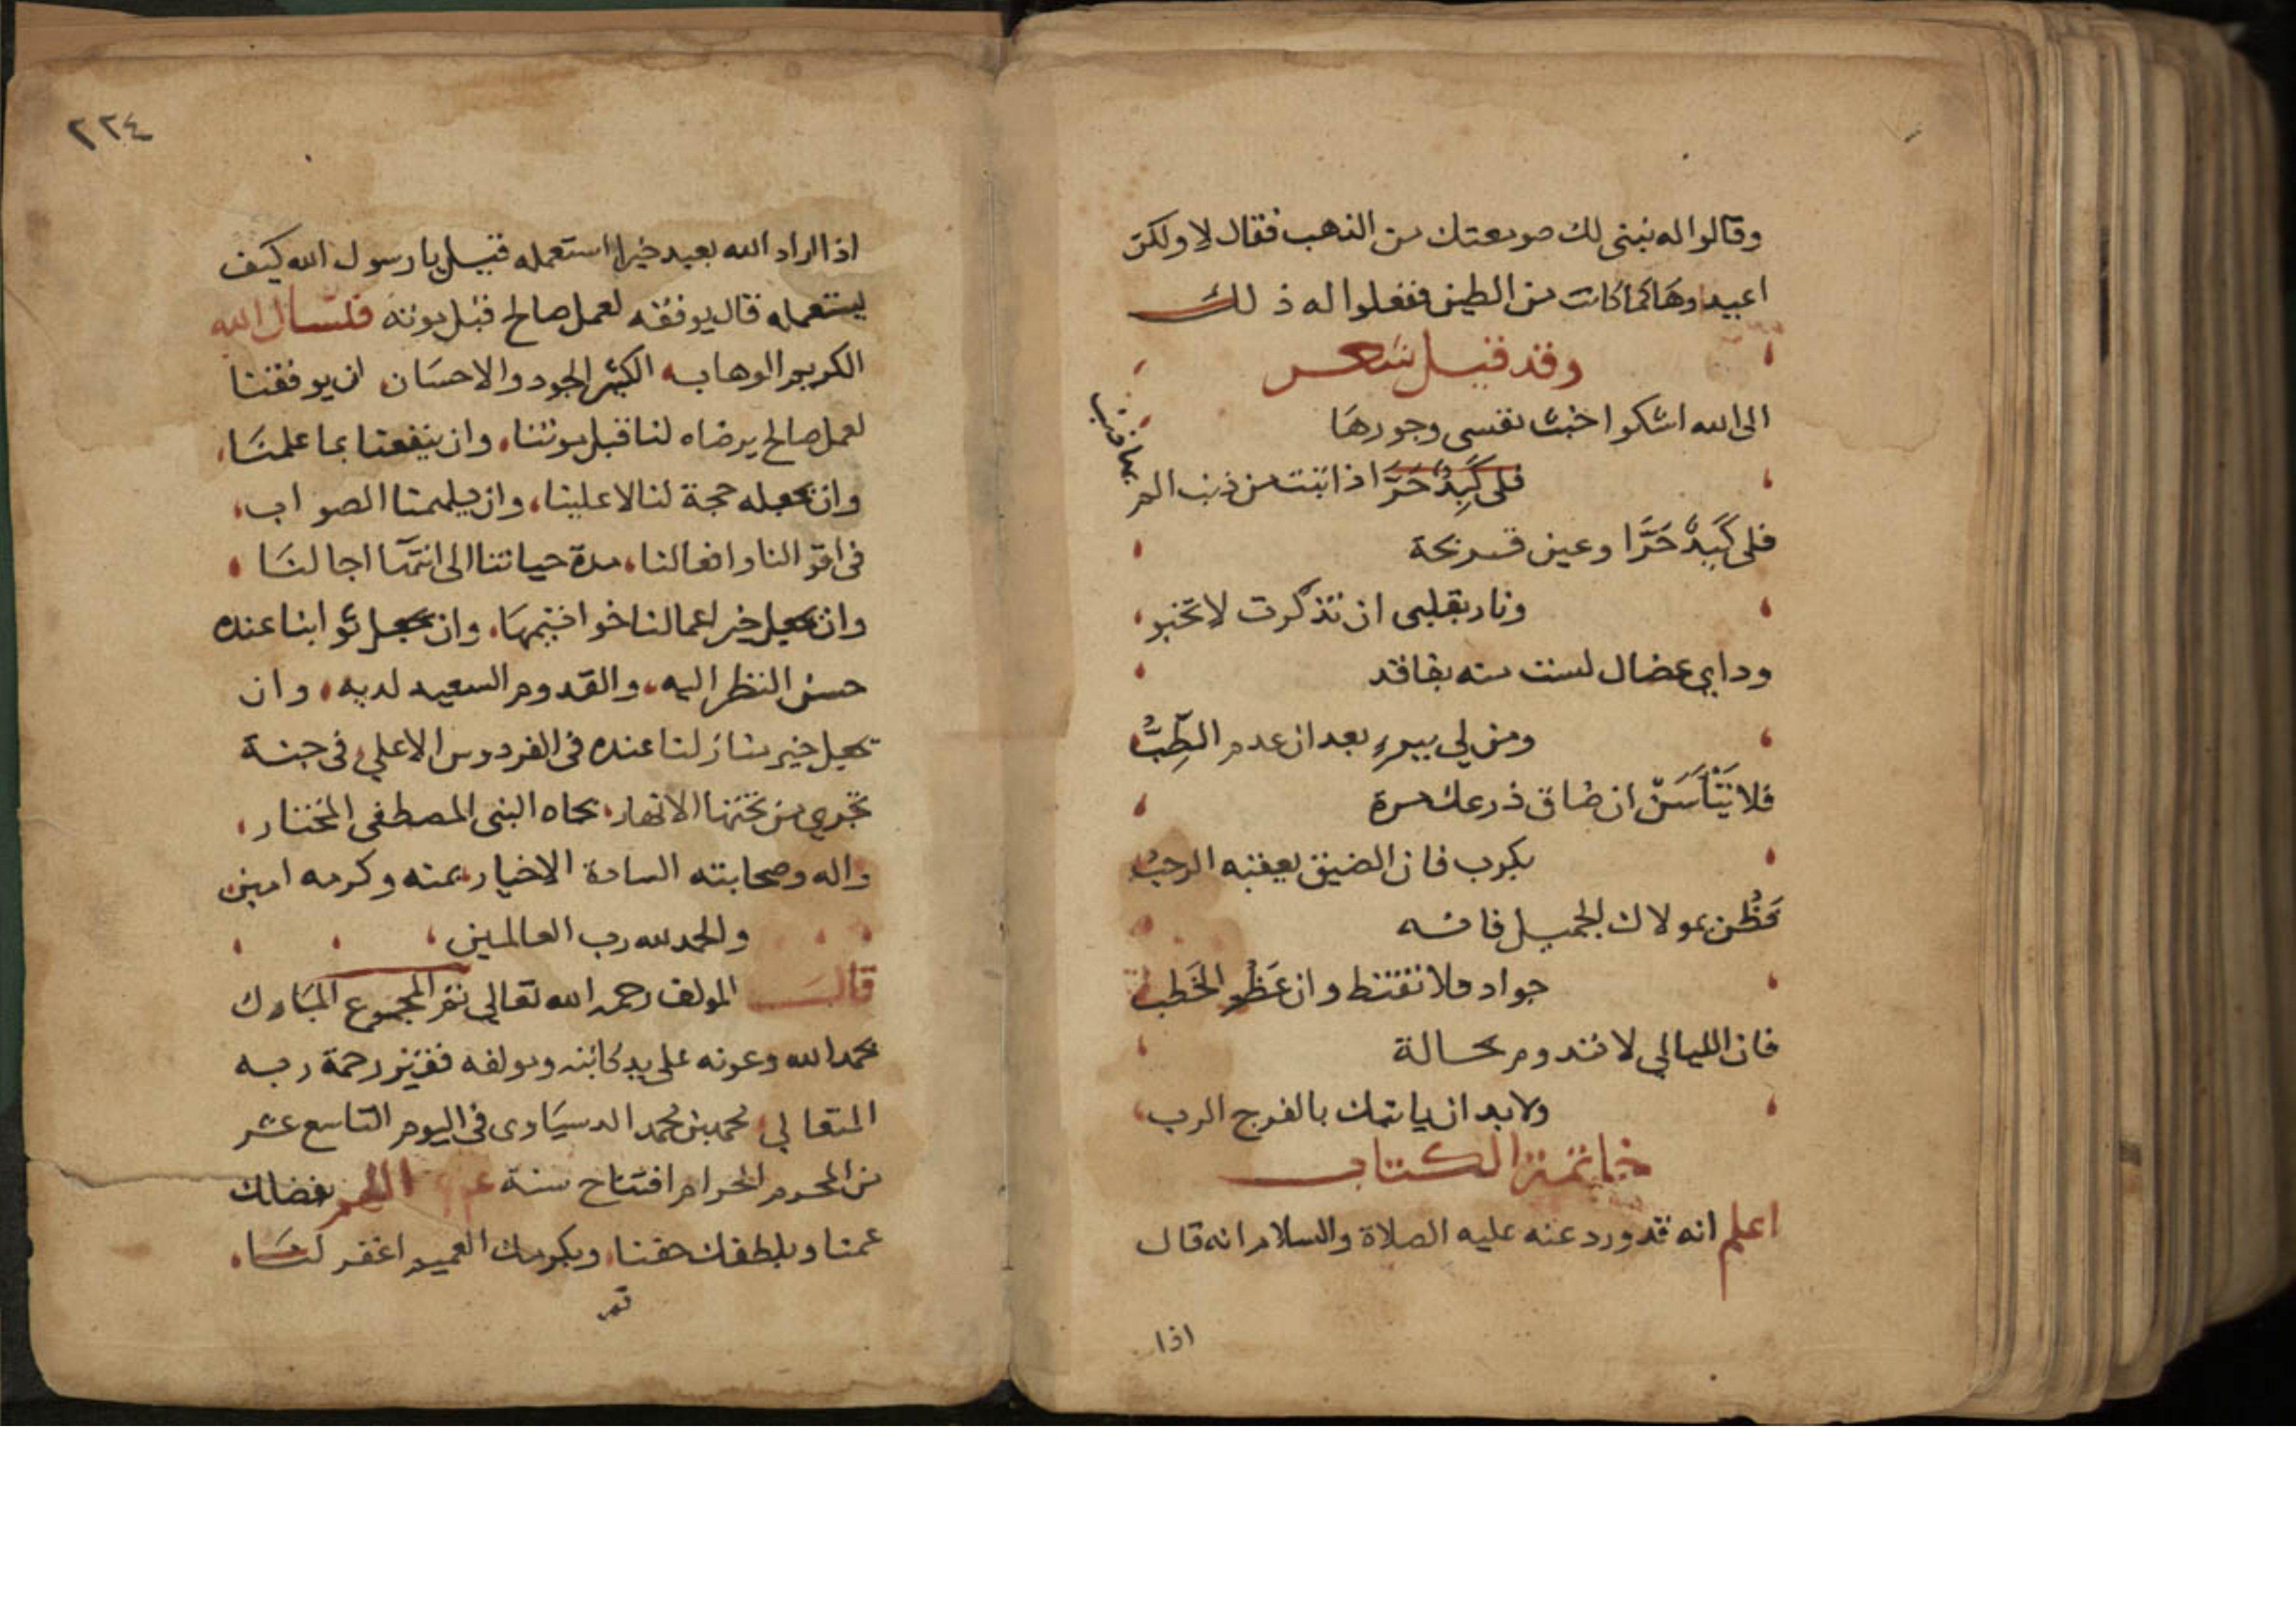 وقالوا له نبني لك صومعتك من الذهب فقال لا ولكن
اعيدوها كما كانت من الطين ففعلوا له ذلك
وقد قيل شعر
الى الله اشكوا خبث نفسي وجورها
فلي كَبِدٌ حَرَّا اذا تبت من ذنب الم
بها ذنب
فلي كَبِدٌ حَرَّا وعين قريحة
ونار بقلبي ان تذكرت لا تخبو
وداي عضال لست منه بفاقد
ومن لي ببرء بعد ان عدم الطِّبُّ
فلا يَيْأَسَنْ ان ضاق ذرعك مرة
بكرب فان الضيق يعقبه الرحبُ
فَظُن بمولاك الجميل فانه
جواد فلا تقنط وان عَظُم الخَطب
فان الليالي لا تدوم بحالة
ولا بد ان ياتيك بالفرج الرب
خاتمة الكتاب
اعلم انه قد ورد عنه عليه الصلاة والسلام انه قال
اذا
٢٢٤
اذا اراد الله بعبد خيرا استعمله قيل يا رسول الله كيف
يستعمله قال يوفقه لعمل صالح قبل موته فنسال الله
الكريم الوهاب الكثير الجود والاحسان ان يوفقنا
لعمل صالح يرضاه لنا قبل موتنا وان ينفعنا بما علمنا
وان يجعله حجة لنا لا علينا وان يلهمنا الصواب
في اقوالنا وافعالنا مدة حياتنا الى انتها اجالنا
وان يجعل خير اعمالنا خواتيمها وان يجعل ثوابنا عنده
حسن النظر اليه والقدوم السعيد لديه وان
يجعل خير منازلنا عنده في الفردوس الاعلي في جنة
تجري من تحتها الانهار بجاه النبي المصطفى المختار
واله وصحابته السادة الاخيار بمنه وكرمه امين
والحمد لله رب العالمين
قال المولف رحمه الله تعالي تم المجموع المبارك
بحمد الله وعونه على يد كاتبه ومولفه فقير رحمة ربه
المتعالي محمد بن محمد الدسياوى في اليوم التاسع عشر
من المحرم الحرام افتتاح سنة اللهم بفضلك
عمنا وبلطفك حفنا وبكرمك العميم اغفر لنا
تم